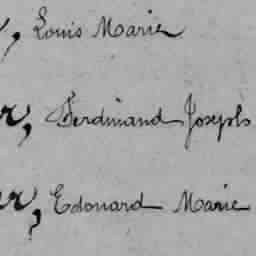 , Louis Marie
r, Ferdinand Joseph
er, Edouard Marie